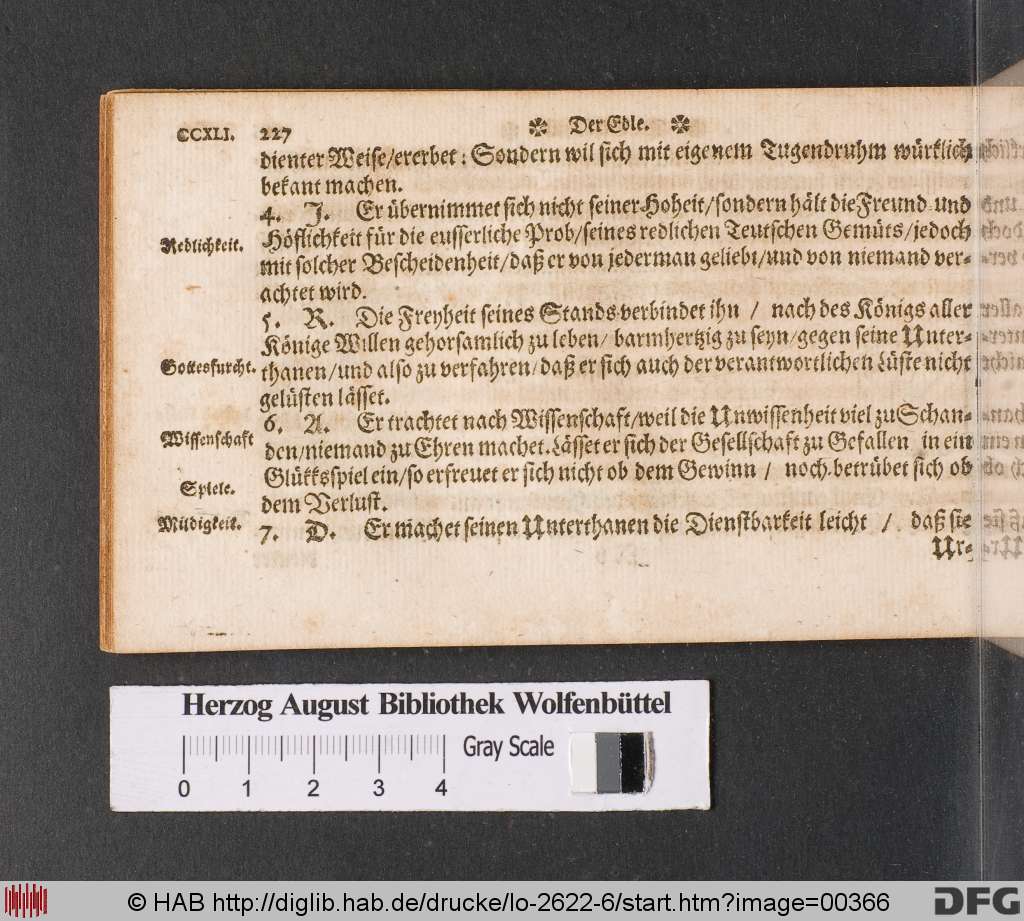 CCXLI. 227 ✼ Der Edle. ✼
dienter Weise/ererbet: Sondern wil sich mit eigenem Tugendruhm würklich
bekant machen.
4. J. Er übernimmet sich nicht seiner Hoheit/sondern hält die Freund und
Redlichkeit. Höflichkeit für die eusserliche Prob/seines redlichen Teutschen Gemüts/jedoch
mit solcher Bescheidenheit/daß er von jederman geliebt/und von niemand ver-
achtet wird.
5. R. Die Freyheit seines Stands verbindet ihn / nach des Königs aller
Könige Willen gehorsamlich zu leben/ barmhertzig zu seyn/gegen seine Unter-
Gottesfurcht. thanen/und also zu verfahren/daß er sich auch der verantwortlichen Lüste nicht
gelüsten lässet.
6. A. Er trachtet nach Wissenschaft/weil die Unwissenheit viel zu Schan-
Wissenschaft den/niemand zu Ehren machet. Lässet er sich der Gesellschaft zu Gefallen in ein
Glükksspiel ein/so erfreuet er sich nicht ob dem Gewinn / noch betrübet sich ob
Spiele. dem Verlust.
Mildigkeit. 7. D. Er machet seinen Unterthanen die Dienstbarkeit leicht / daß sie
Ur-
Herzog August Bibliothek Wolfenbüttel
Gray Scale
0 1 2 3 4
© HAB http://diglib.hab.de/drucke/lo-2622-6/start.htm?image=00366
DFG